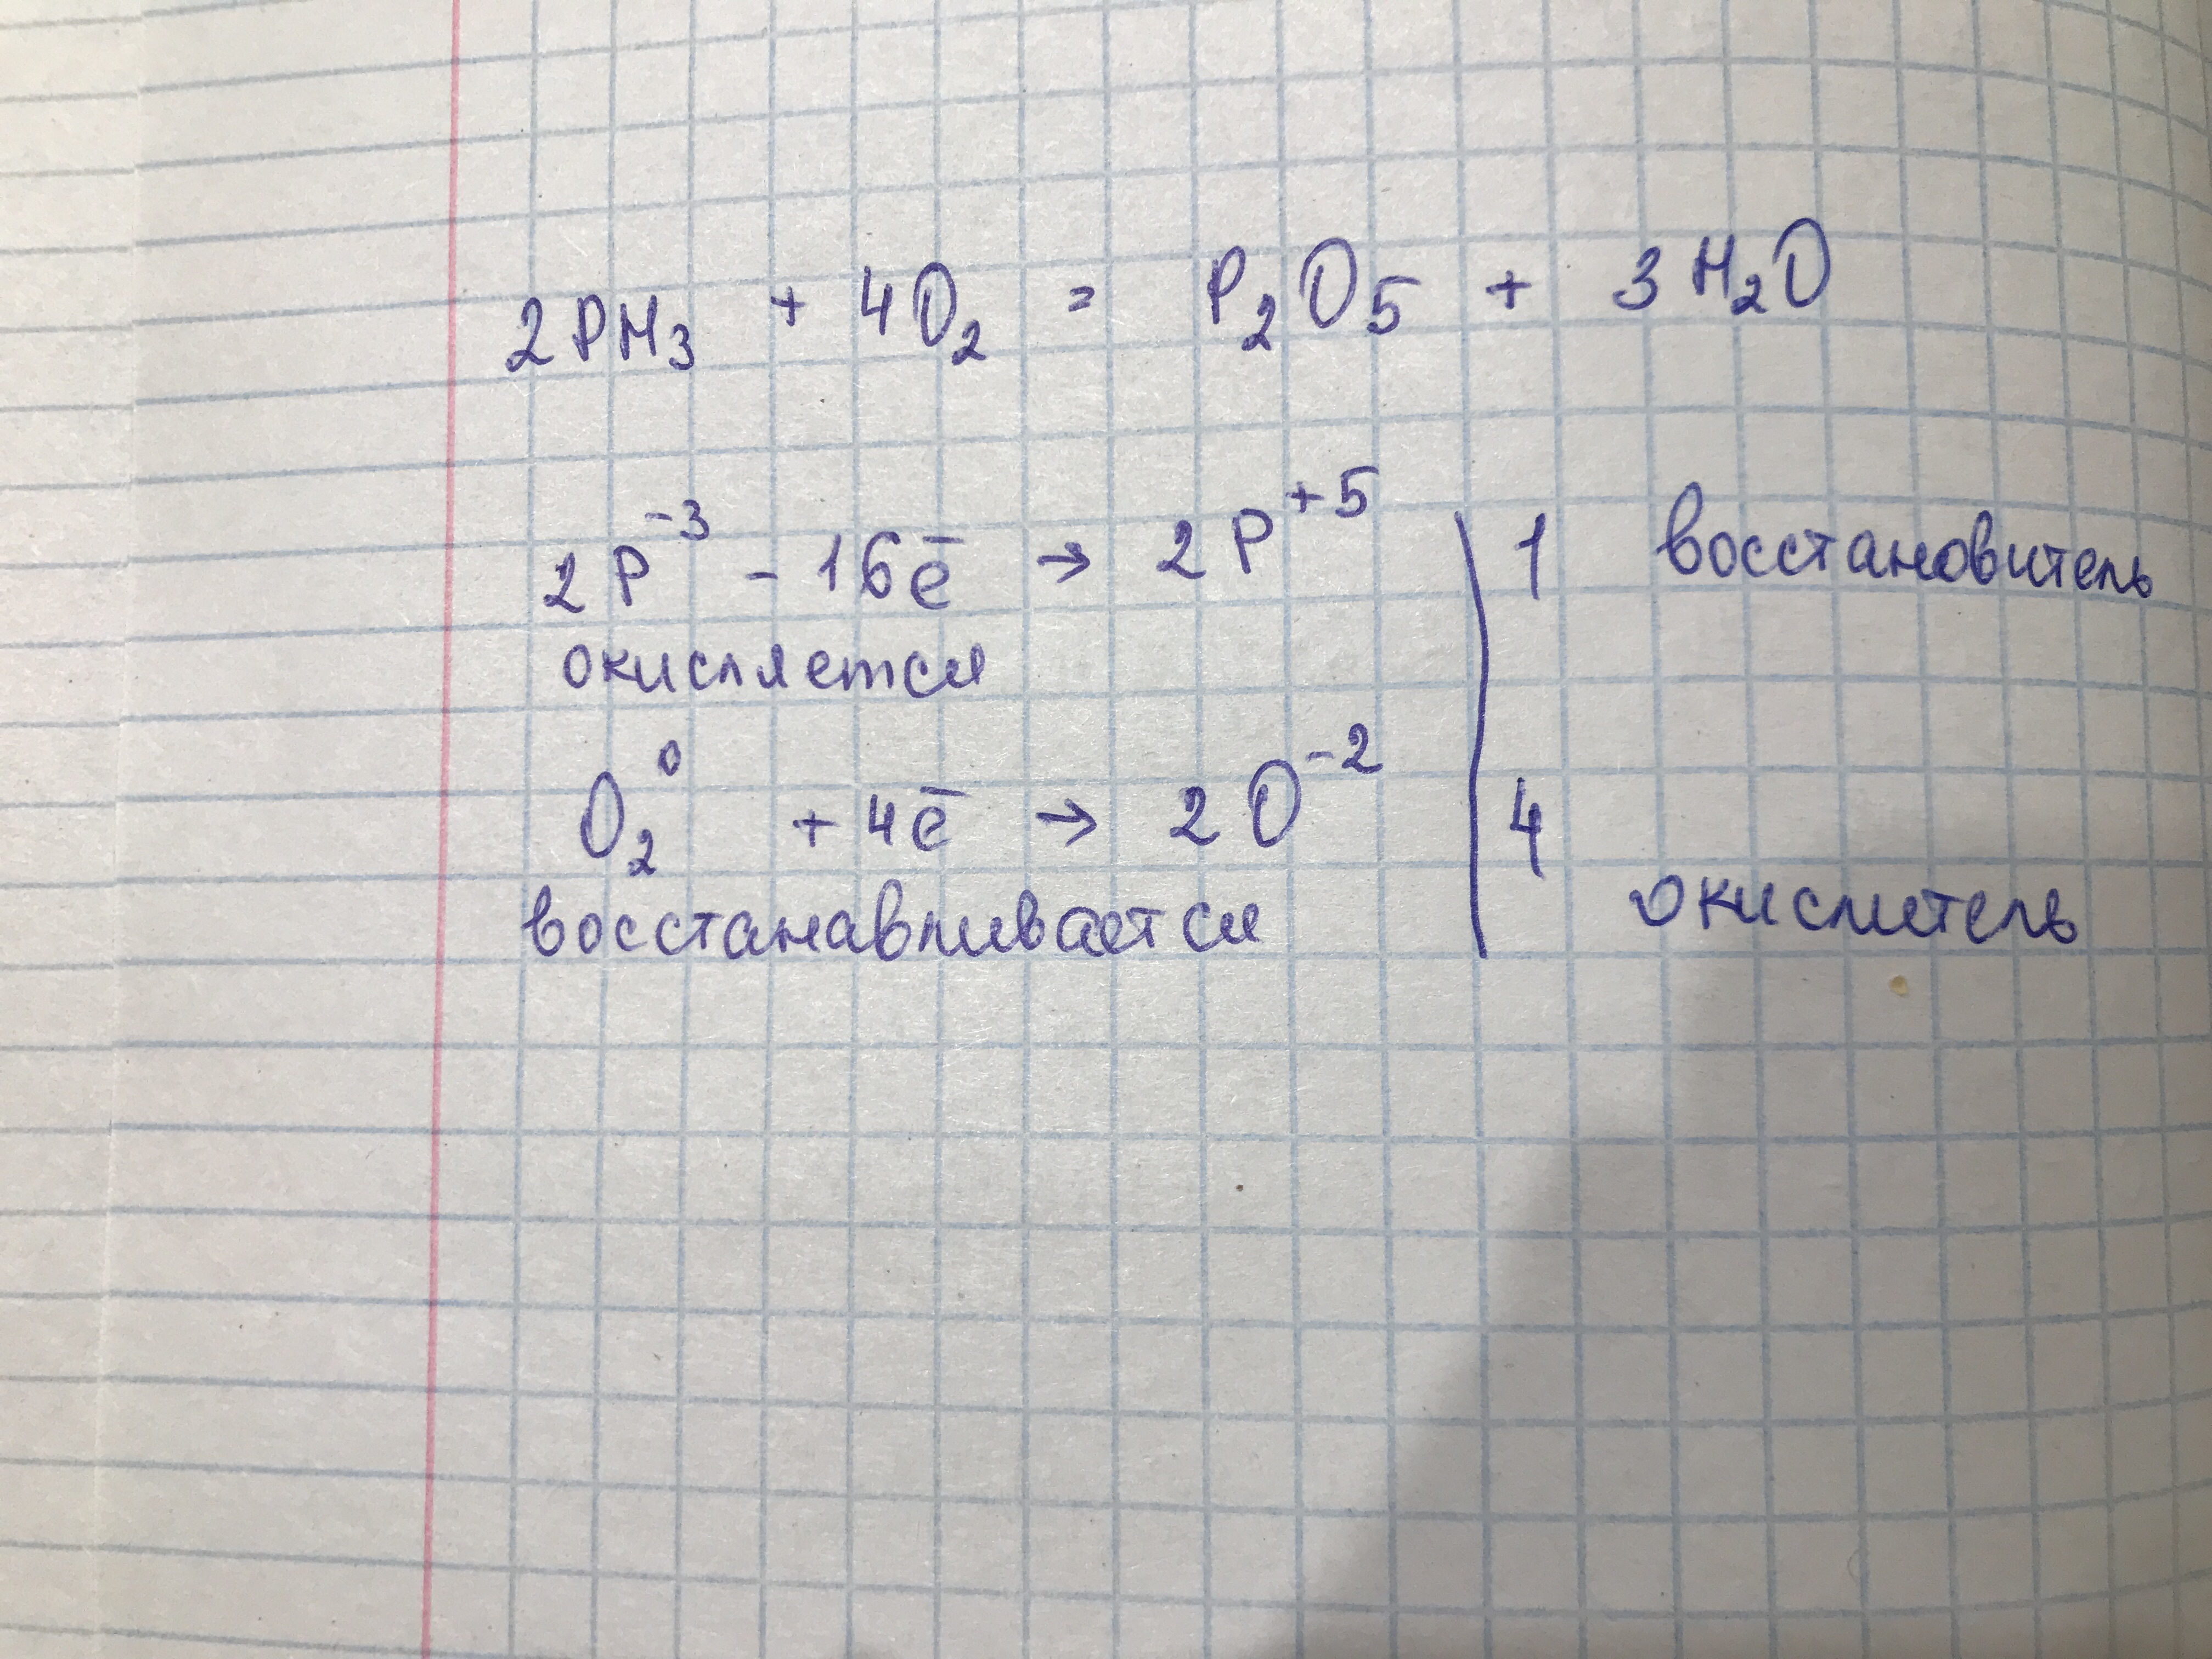 2PH₃ + 4O₂ = P₂O₅ + 3H₂O
2P⁻³ - 16ē → 2P⁺⁵ | 1 восстановитель
окисляется
O₂⁰ + 4ē → 2O⁻² | 4 окислитель
восстанавливается